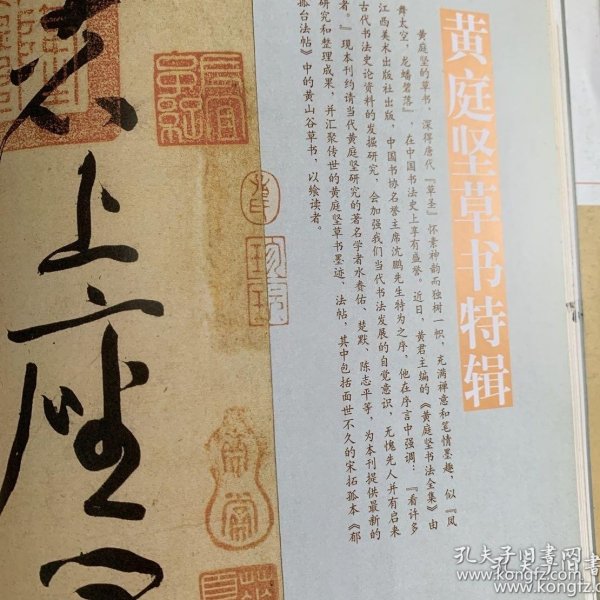 黄庭坚草书特辑
黄庭坚的草书，深得唐代『草圣』怀素神韵而独树一帜，充满禅意和笔情墨趣，似『凤
舞太空，龙蟠碧落』，在中国书法史上享有盛誉。近日，黄君主编的《黄庭坚书法全集》由
江西美术出版社出版，中国书协名誉主席沈鹏先生特为之序，他在序言中强调：『看许多
古代书法史论资料的发掘研究，会加强我们当代书法发展的自觉意识，无愧先人并有启来
者。』现本刊约请当代黄庭坚研究的著名学者水赉佑、楚默、陈志平等，为本刊提供最新的
研究和整理成果，并汇聚传世的黄庭坚草书墨迹、法帖，其中包括面世不久的宋拓孤本《郁
孤台法帖》中的黄山谷草书，以飨读者。
上座
孔夫子旧书网
www.kongfz.com